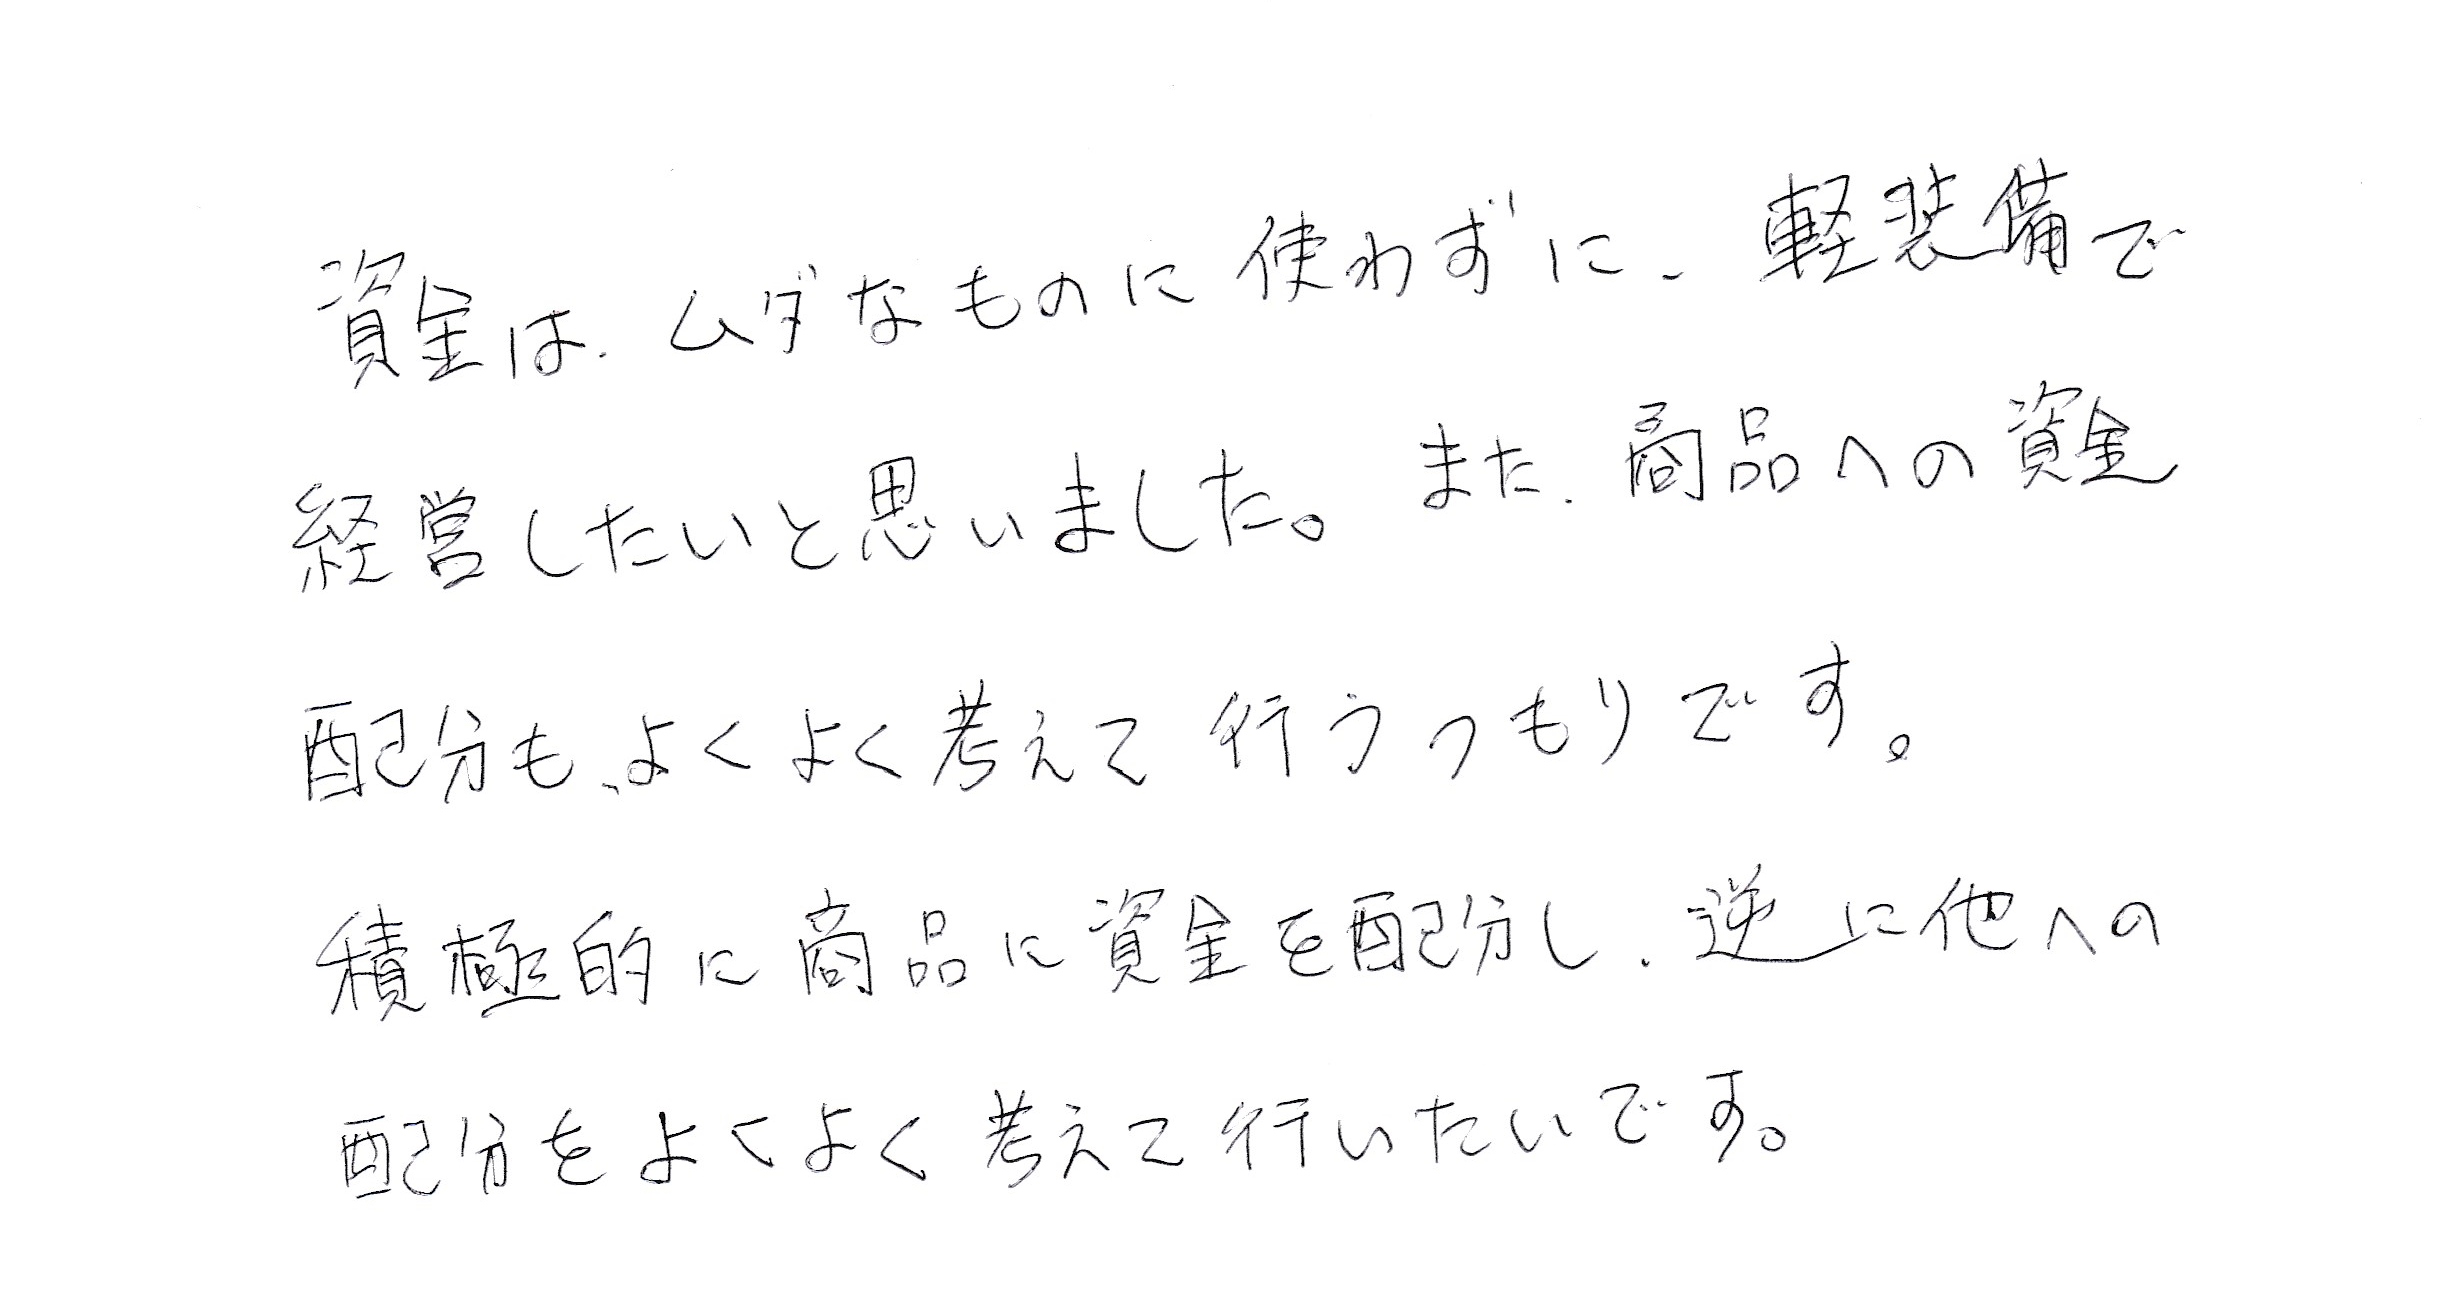 資金は、ムダなものに使わずに、軽装備で
経営したいと思いました。また、商品への資金
配分も、よくよく考えて行うつもりです。
積極的に商品に資金を配分し、逆に他への
配分をよくよく考えて行いたいです。